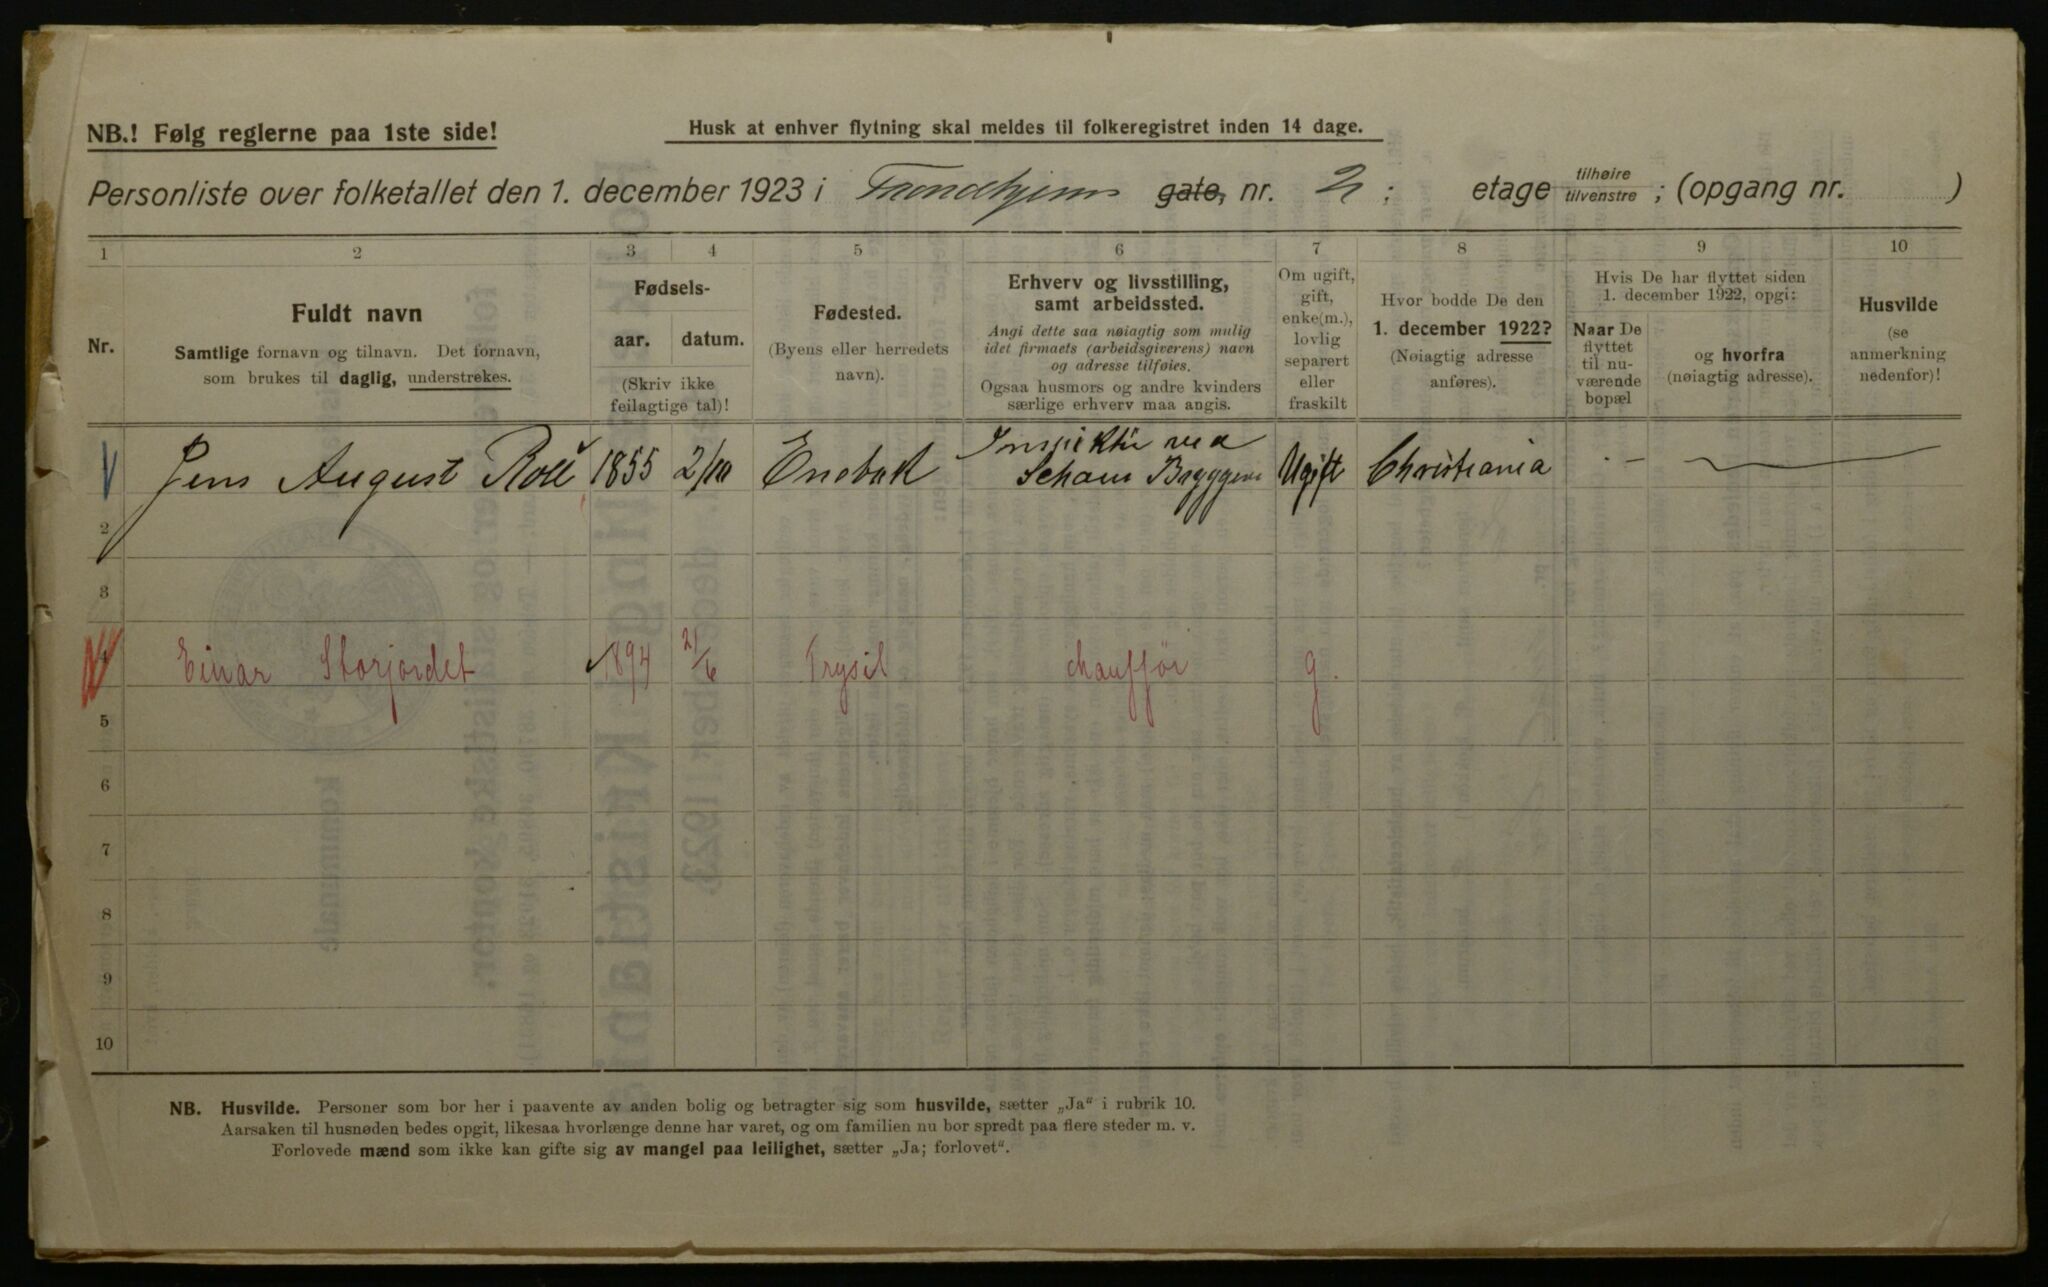 NB.! Følg reglerne paa 1ste side!
Husk at enhver flytning skal meldes til folkeregistret inden 14 dage.
Personliste over folketallet den 1. december 1923 i Trondhjems gate, nr. 2 ; etage tilhøire tilvenstre ; (opgang nr. )
1 2 3 4 5 6 7 8 9 10
Nr.
Fuldt navn
Samtlige fornavn og tilnavn. Det fornavn,
som brukes til daglig, understrekes.
Fødsels-
aar. datum.
(Skriv ikke
feilagtige tal)!
Fødested.
(Byens eller herredets
navn).
Erhverv og livsstilling,
samt arbeidssted.
Angi dette saa nøiagtig som mulig
idet firmaets (arbeidsgiverens) navn
og adresse tilføies.
Ogsaa husmors og andre kvinders
særlige erhverv maa angis.
Om ugift,
gift,
enke(m.),
lovlig
separert
eller
fraskilt
Hvor bodde De den
1. december 1922?
(Nøiagtig adresse
anføres).
Hvis De har flyttet siden
1. december 1922, opgi:
Naar De
flyttet
til nu-
værende
bopæl
og hvorfra
(nøiagtig adresse).
Husvilde
(se
anmerkning
nedenfor)!
Jens August Roll 1855 2/10 Enebak Inspektør ved
Schous Bryggeri Ugift Christiania
2
3
Einar Storjordet 1894 21/6 Trysil chauffør g.
5
6
7
8
9
10
NB. Husvilde. Personer som bor her i paavente av anden bolig og betragter sig som husvilde, sætter „Ja“ i rubrik 10.
Aarsaken til husnøden bedes opgit, likesaa hvorlænge denne har varet, og om familien nu bor spredt paa flere steder m. v.
Forlovede mænd som ikke kan gifte sig av mangel paa leilighet, sætter „Ja; forlovet“.